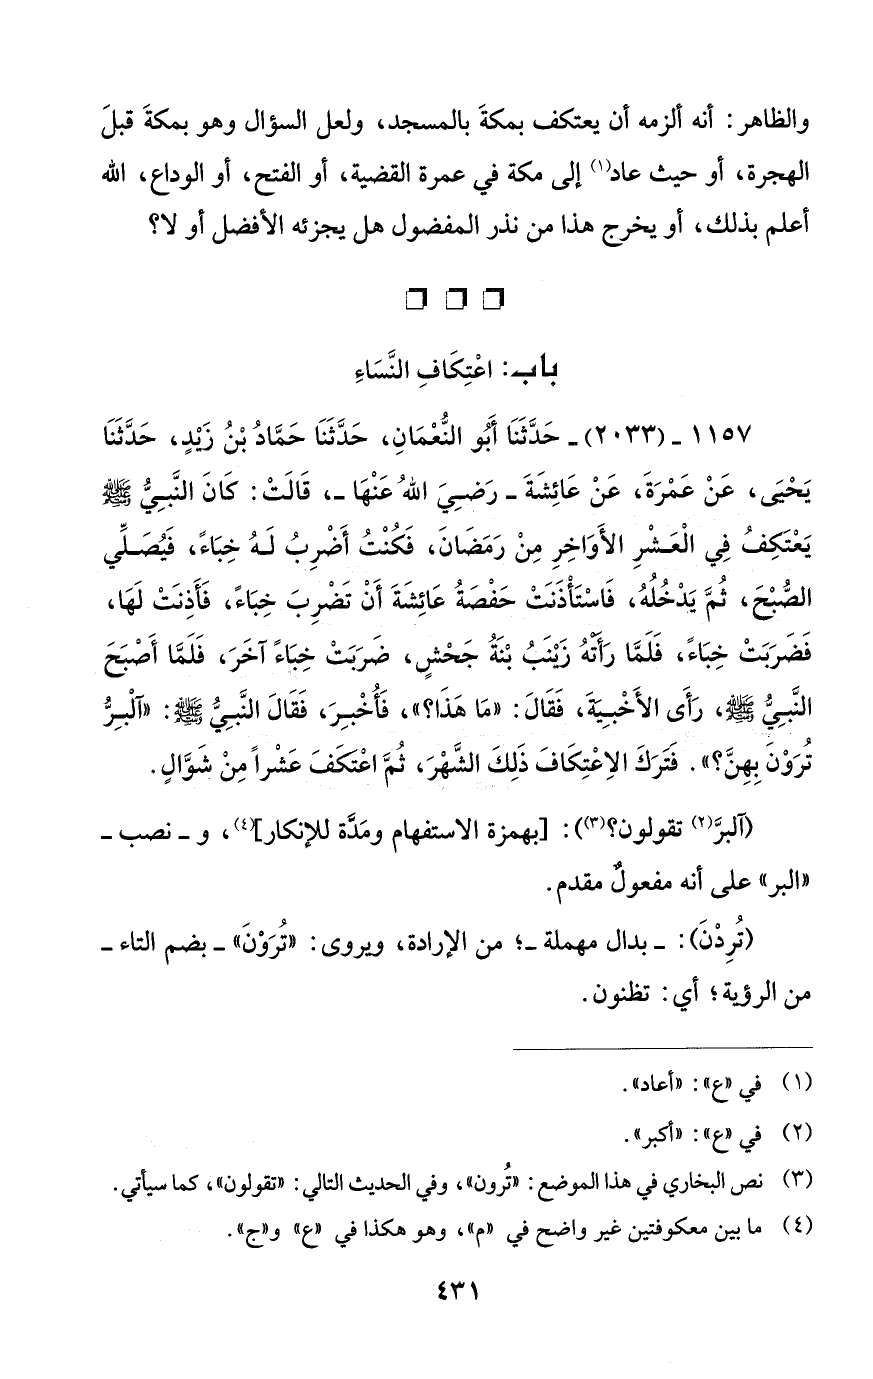 والظاهر: أنه ألزمه أن يعتكف بمكةَ بالمسجد، ولعل السؤال وهو بمكةَ قبلَ
الهجرة، أو حيث عاد(١) إلى مكة في عمرة القضية، أو الفتح، أو الوداع، الله
أعلم بذلك، أو يخرج هذا من نذر المفضول هل يجزئه الأفضل أو لا؟
باب: اعْتِكَافِ النَّسَاءِ
١١٥٧ ـ (٢٠٣٣) ـ حَدَّثَنَا أَبُو النُّعْمَانِ، حَدَّثَنَا حَمَّادُ بْنُ زَيْدٍ، حَدَّثَنَا
يَحْيَى، عَنْ عَمْرَةَ، عَنْ عَائِشَةَ ـ رَضِيَ اللهُ عَنْهَا ـ، قَالَتْ: كَانَ النَّبِيُّ ﷺ
يَعْتَكِفُ فِي الْعَشْرِ الأَوَاخِرِ مِنْ رَمَضَانَ، فَكُنْتُ أَضْرِبُ لَهُ خِبَاءً، فَيُصَلِّي
الصُّبْحَ، ثُمَّ يَدْخُلُهُ، فَاسْتَأْذَنَتْ حَفْصَةُ عَائِشَةَ أَنْ تَضْرِبَ خِبَاءً، فَأَذِنَتْ لَهَا،
فَضَرَبَتْ خِبَاءً، فَلَمَّا رَأَتْهُ زَيْنَبُ بْنَةُ جَحْشٍ، ضَرَبَتْ خِبَاءً آخَرَ، فَلَمَّا أَصْبَحَ
النَّبِيُّ ﷺ، رَأَى الأَخْبِيَةَ، فَقَالَ: «مَا هَذَا؟»، فَأُخْبِرَ، فَقَالَ النَّبِيُّ ﷺ: «آلْبِرُّ
تُرَوْنَ بِهِنَّ؟». فَتَرَكَ الاِعْتِكَافَ ذَلِكَ الشَّهْرَ، ثُمَّ اعْتَكَفَ عَشْراً مِنْ شَوَّالٍ.
(آلبرَّ(٢) تقولون؟(٣)): [بهمزة الاستفهام ومَدَّة للإنكار](٤)، و ـ نصب ـ
«البر» على أنه مفعولٌ مقدم.
(تُرِدْنَ): ـ بدال مهملة ـ؛ من الإرادة، ويروى: «تُرَوْنَ» ـ بضم التاء ـ
من الرؤية؛ أي: تظنون.
(١) في «ع»: «أعاد».
(٢) في «ع»: «أكبر».
(٣) نص البخاري في هذا الموضع: «تُرون»، وفي الحديث التالي: «تقولون»، كما سيأتي.
(٤) ما بين معكوفتين غير واضح في «م»، وهو هكذا في «ع» و«ج».
٤٣١